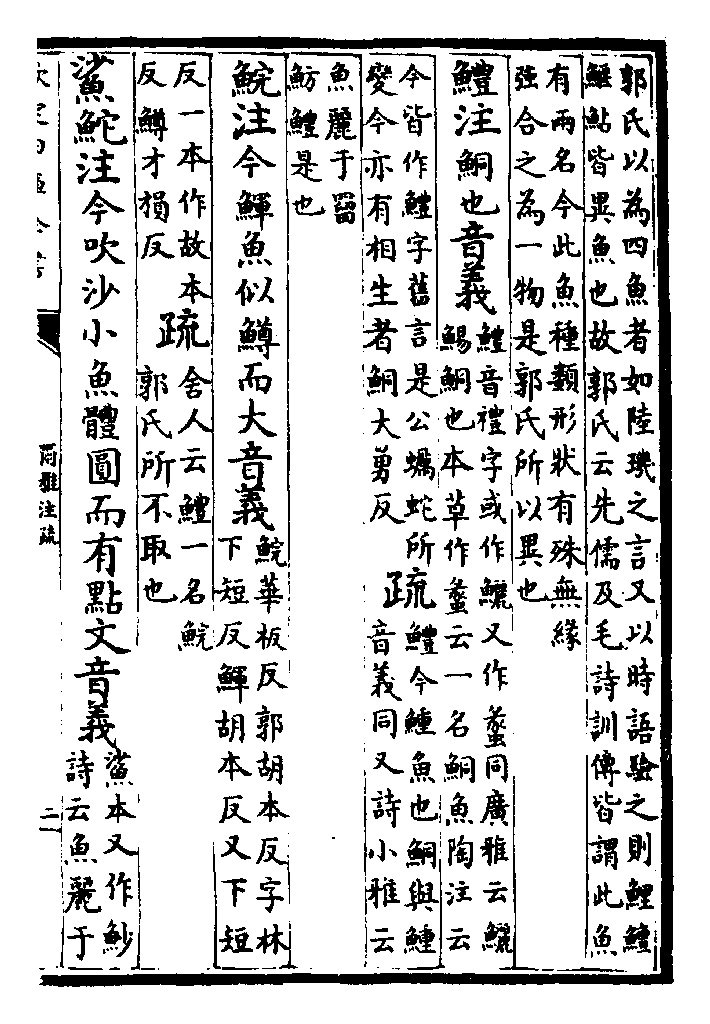 郭氏以為四魚者如陸璣之言又以時語驗之則鯉鱣
鰋鮎皆異魚也故郭氏云先儒及毛詩訓傳皆謂此魚
有兩名今此魚種類形狀有殊無緣
強合之為一物是郭氏所以異也
鱧注鮦也音義
鱧音禮字或作鱺又作蠡同廣雅云鱺
鯣鮦也本草作蠡云一名鮦魚陶注云
今皆作鱧字舊言是公蠣蛇所
變今亦有相生者鮦大勇反
疏
鱧今鱣魚也鮦與鱣
音義同又詩小雅云
魚麗于罶
魴鱧是也
鯇注今鯶魚似鱒而大音義
鯇華板反郭胡本反字林
下短反鯶胡本反又下短
反一本作故本
反鱒才損反
疏
舍人云鱧一名鯇
郭氏所不取也
鯊鮀注今吹沙小魚體圓而有點文音義
鯊本又作魦
詩云魚麗于
欽定四庫全書
爾雅注疏
二